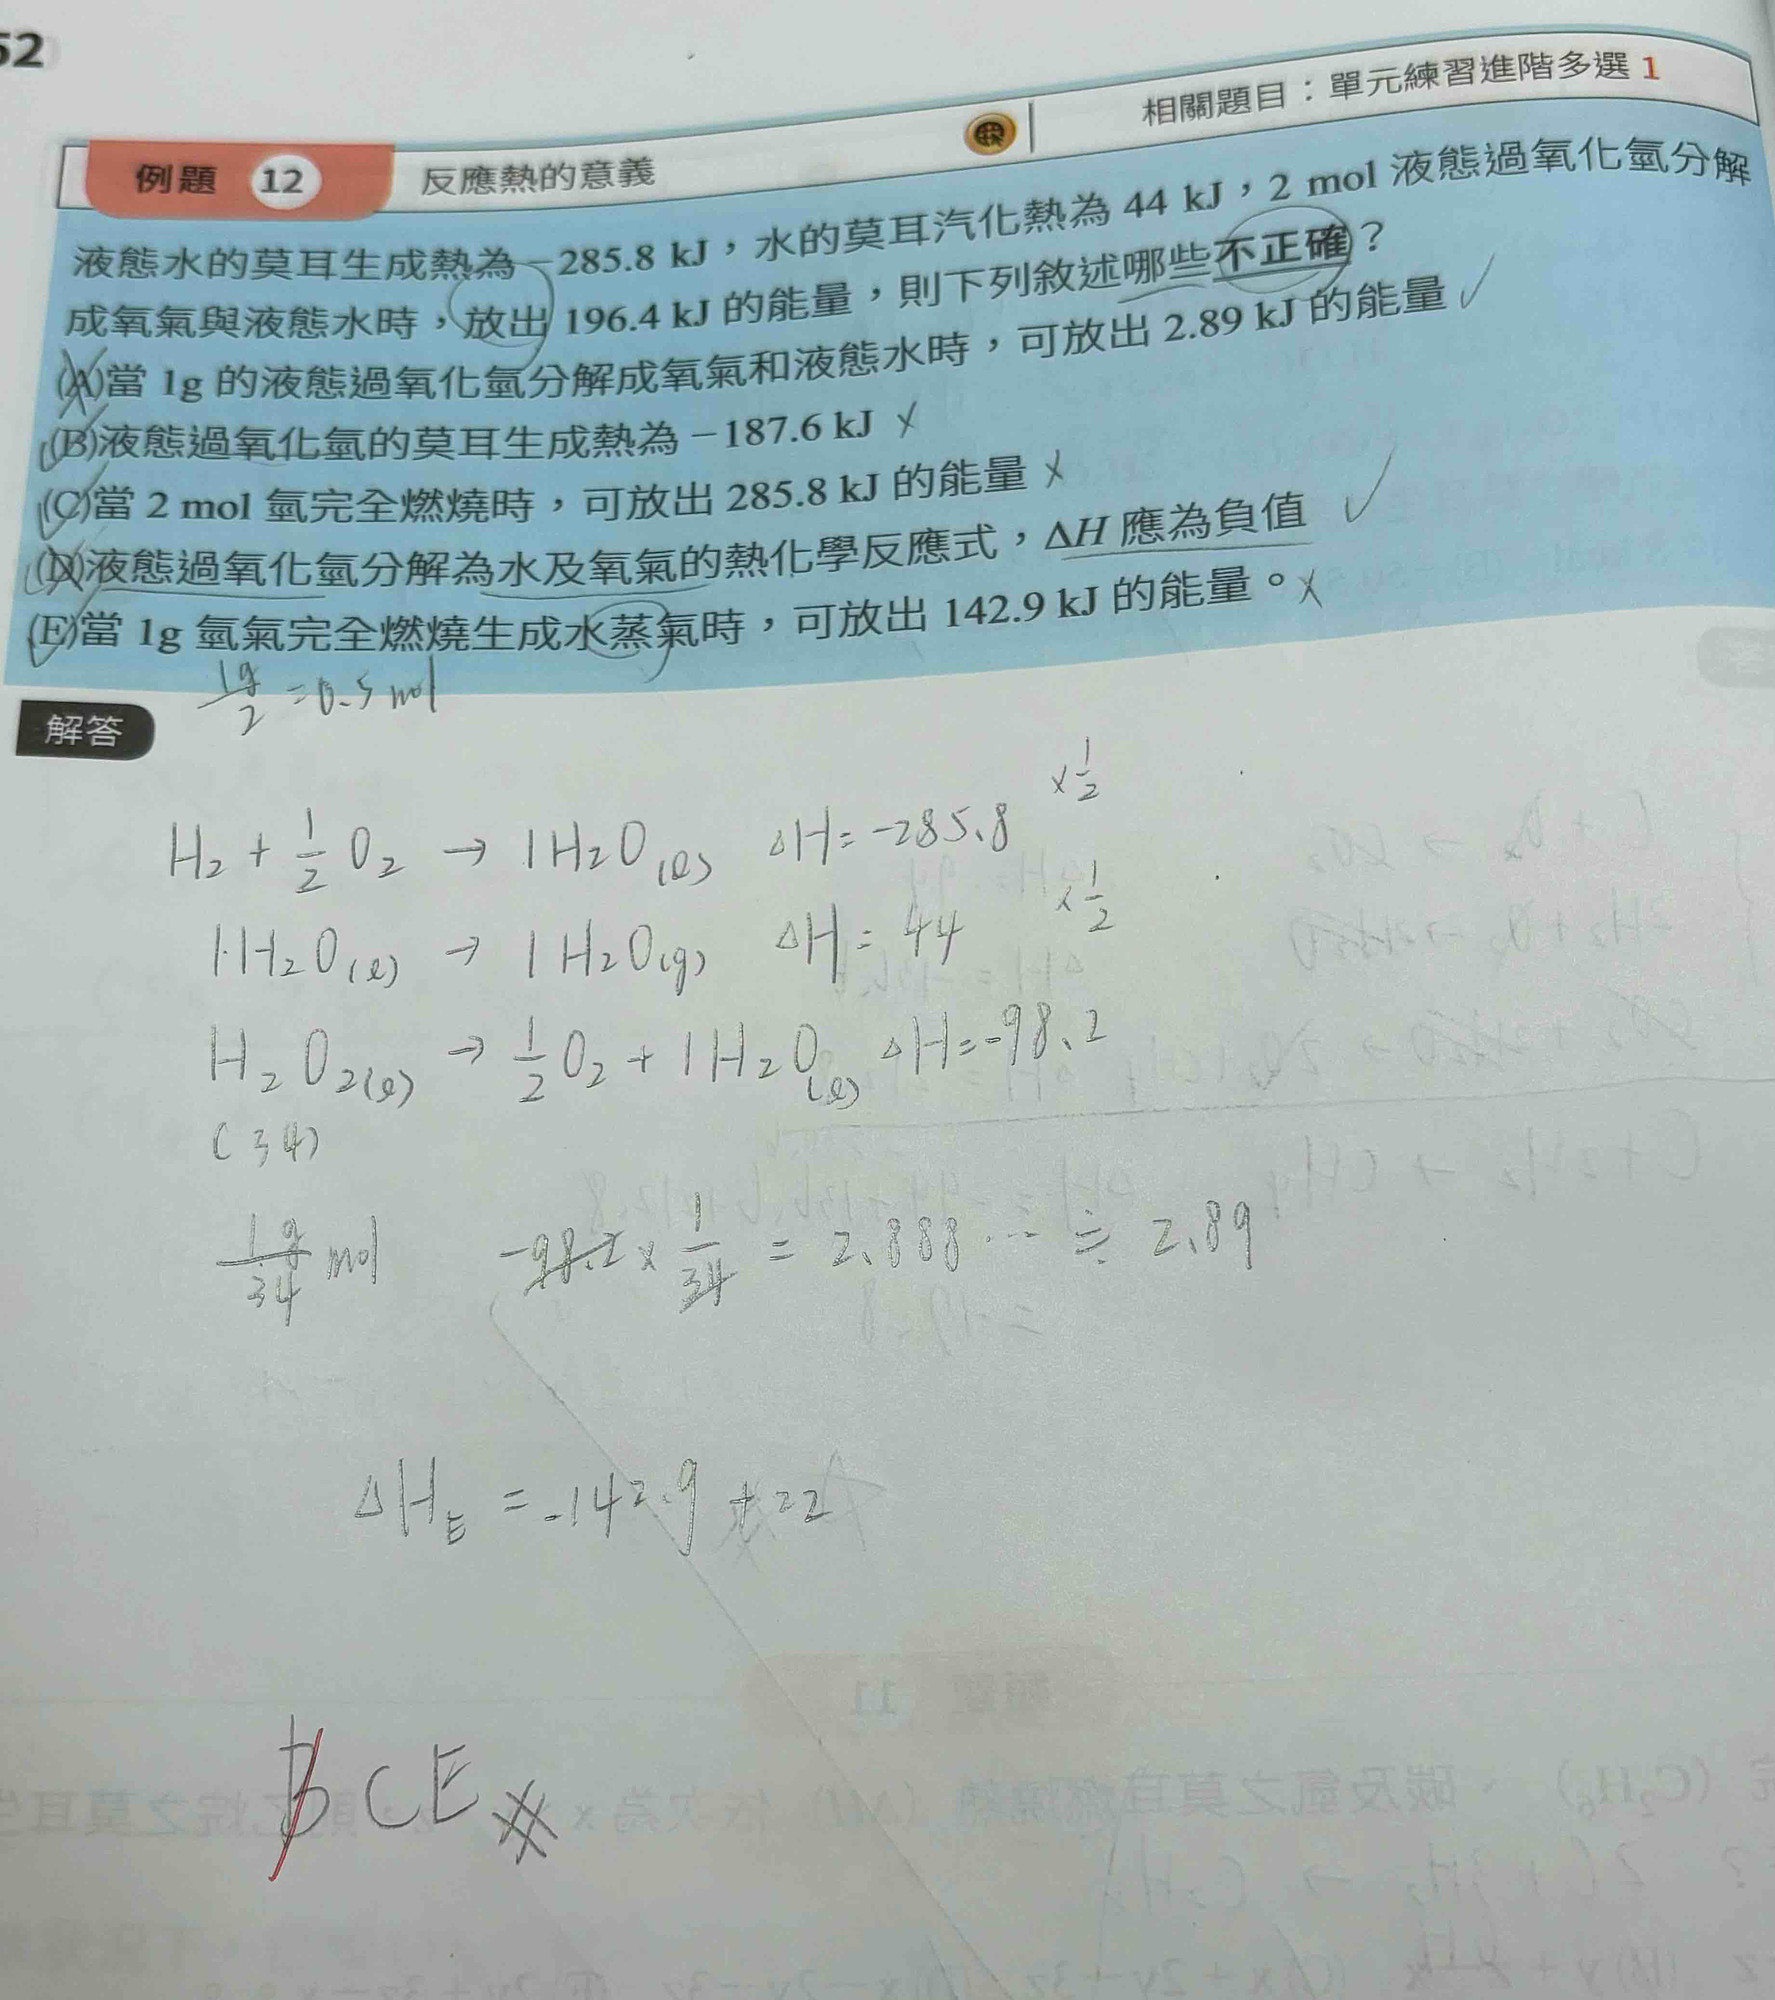 52
相關題目：單元練習進階多選 1
例題 12 反應熱的意義
液態水的莫耳生成熱為－285.8 kJ，水的莫耳汽化熱為 44 kJ，2 mol 液態過氧化氫分解
成氧氣與液態水時，放出 196.4 kJ 的能量，則下列敘述哪些不正確？
(A)當 1g 的液態過氧化氫分解成氧氣和液態水時，可放出 2.89 kJ 的能量 ✓
(B)液態過氧化氫的莫耳生成熱為－187.6 kJ ×
(C)當 2 mol 氫完全燃燒時，可放出 285.8 kJ 的能量 ×
(D)液態過氧化氫分解為水及氧氣的熱化學反應式，ΔH 應為負值 ✓
(E)當 1g 氫氣完全燃燒生成水蒸氣時，可放出 142.9 kJ 的能量。×
1g/2 = 0.5 mol
解答
H₂ + 1/2 O₂ → 1H₂O(ℓ) ΔH = -285.8 ×1/2
1H₂O(ℓ) → 1H₂O(g) ΔH = 44 ×1/2
H₂O₂(ℓ) → 1/2 O₂ + 1H₂O(ℓ) ΔH = -98.2
(34)
1g/34 mol -98.2 × 1/34 = 2.888… ≒ 2.89
ΔH_E = -142.9 + 22
BCE